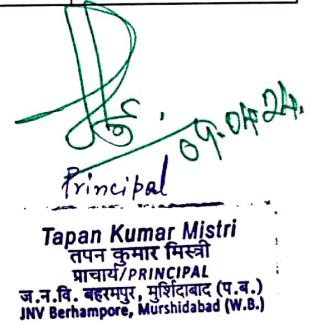 09.04.24.
Principal
Tapan Kumar Mistri
तपन कुमार मिस्त्री
प्राचार्य/PRINCIPAL
ज.न.वि. बहरमपुर, मुर्शिदाबाद (प.ब.)
JNV Berhampore, Murshidabad (W.B.)